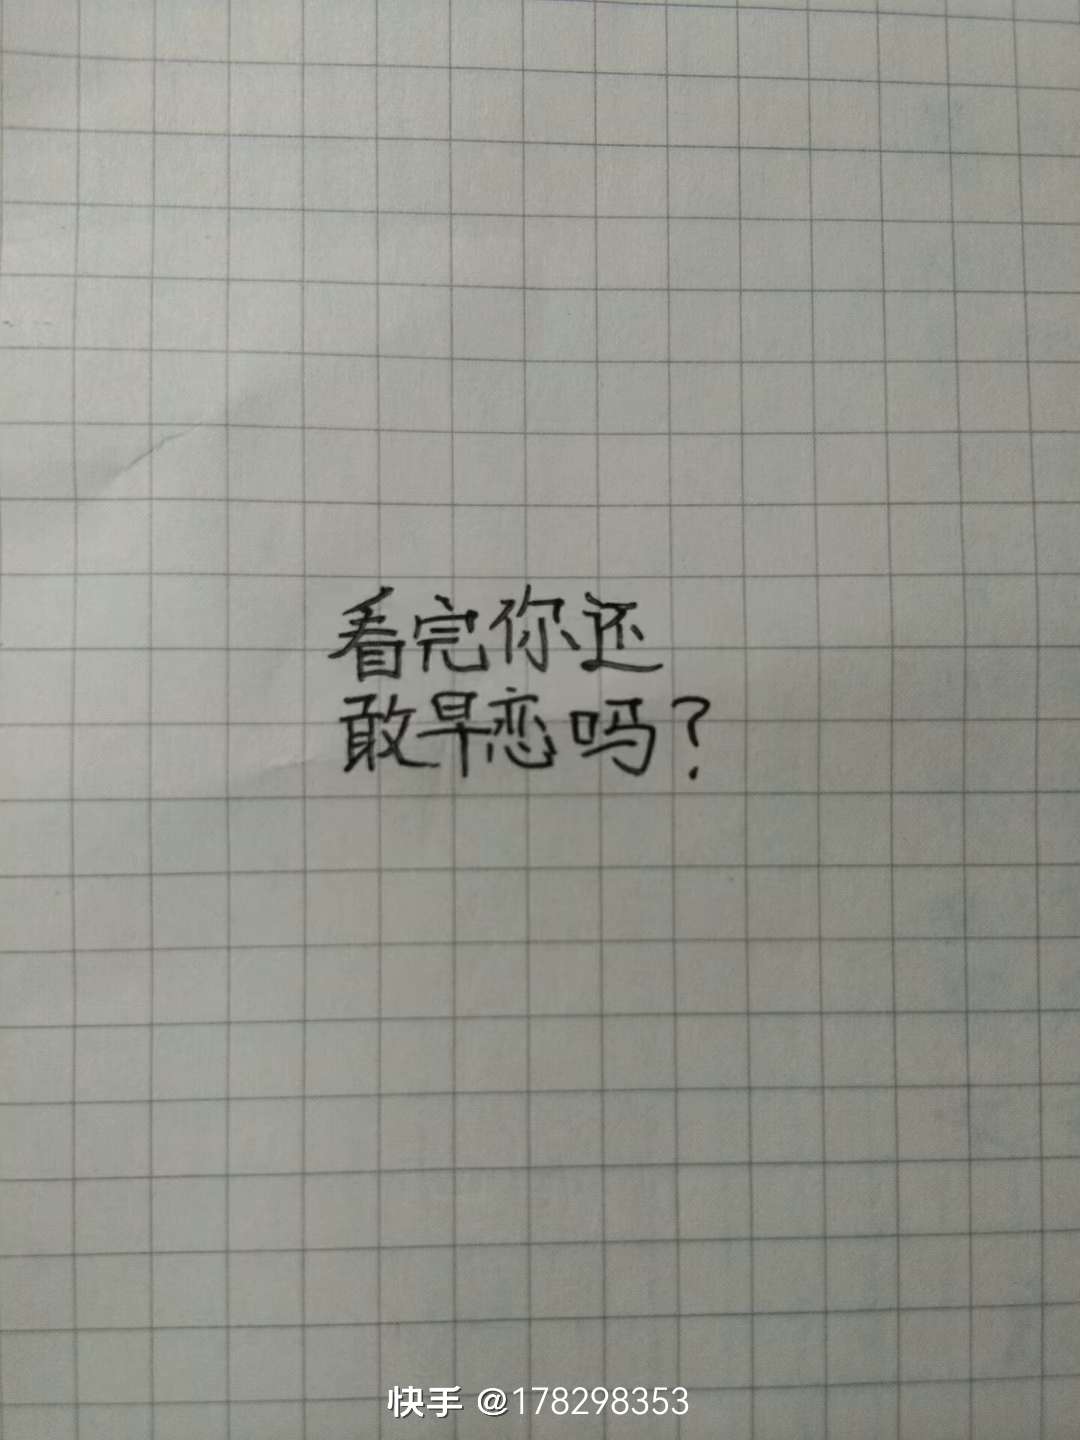 看完你还
敢早恋吗?
快手 @178298353